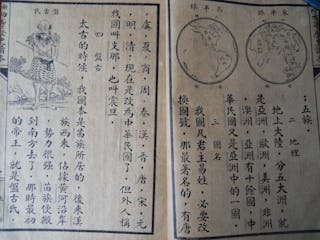 東半球
西半球
、五族
二 地理
地上大陸，分五大洲，就
是亞洲，歐洲，美洲，非洲
，澳洲，亞洲有十餘國，中
華民國又是亞洲中的一國，
三 國名
我國凡君主易姓，必要改
換國號，那最著名的，有唐
，虞，夏，商，周，秦，漢，晉，唐，宋，元
，明，清；現在是改為中華民國了，但外人稱
我國叫支那，也叫震旦，
四 盤古
太古的時候，我國本是苗族所居的，後來漢
盤古氏
族西來，佔據黃河沿岸
，勢力很強，苗族便搬
到南方去了，那時最初
的帝王，就是盤古氏，